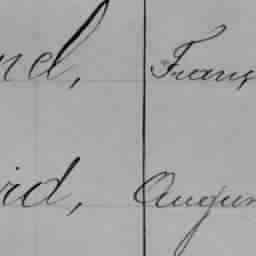 nel, Franç
rid, Augus